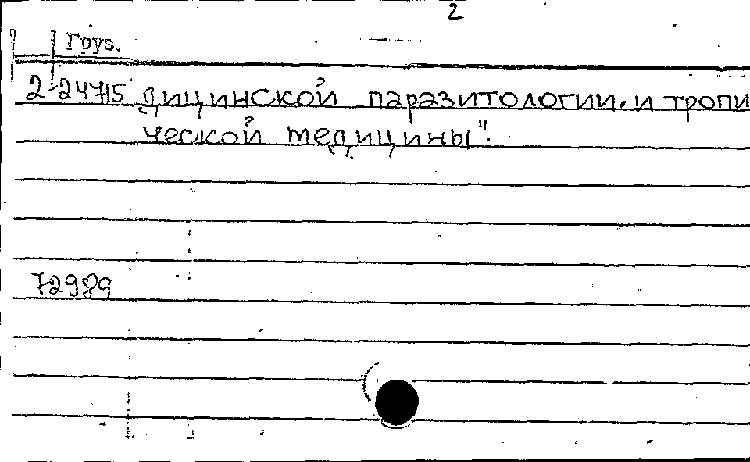 2
Груз.
2-24715 дицинской паразитологии и тропи
ческой медицины".
72989